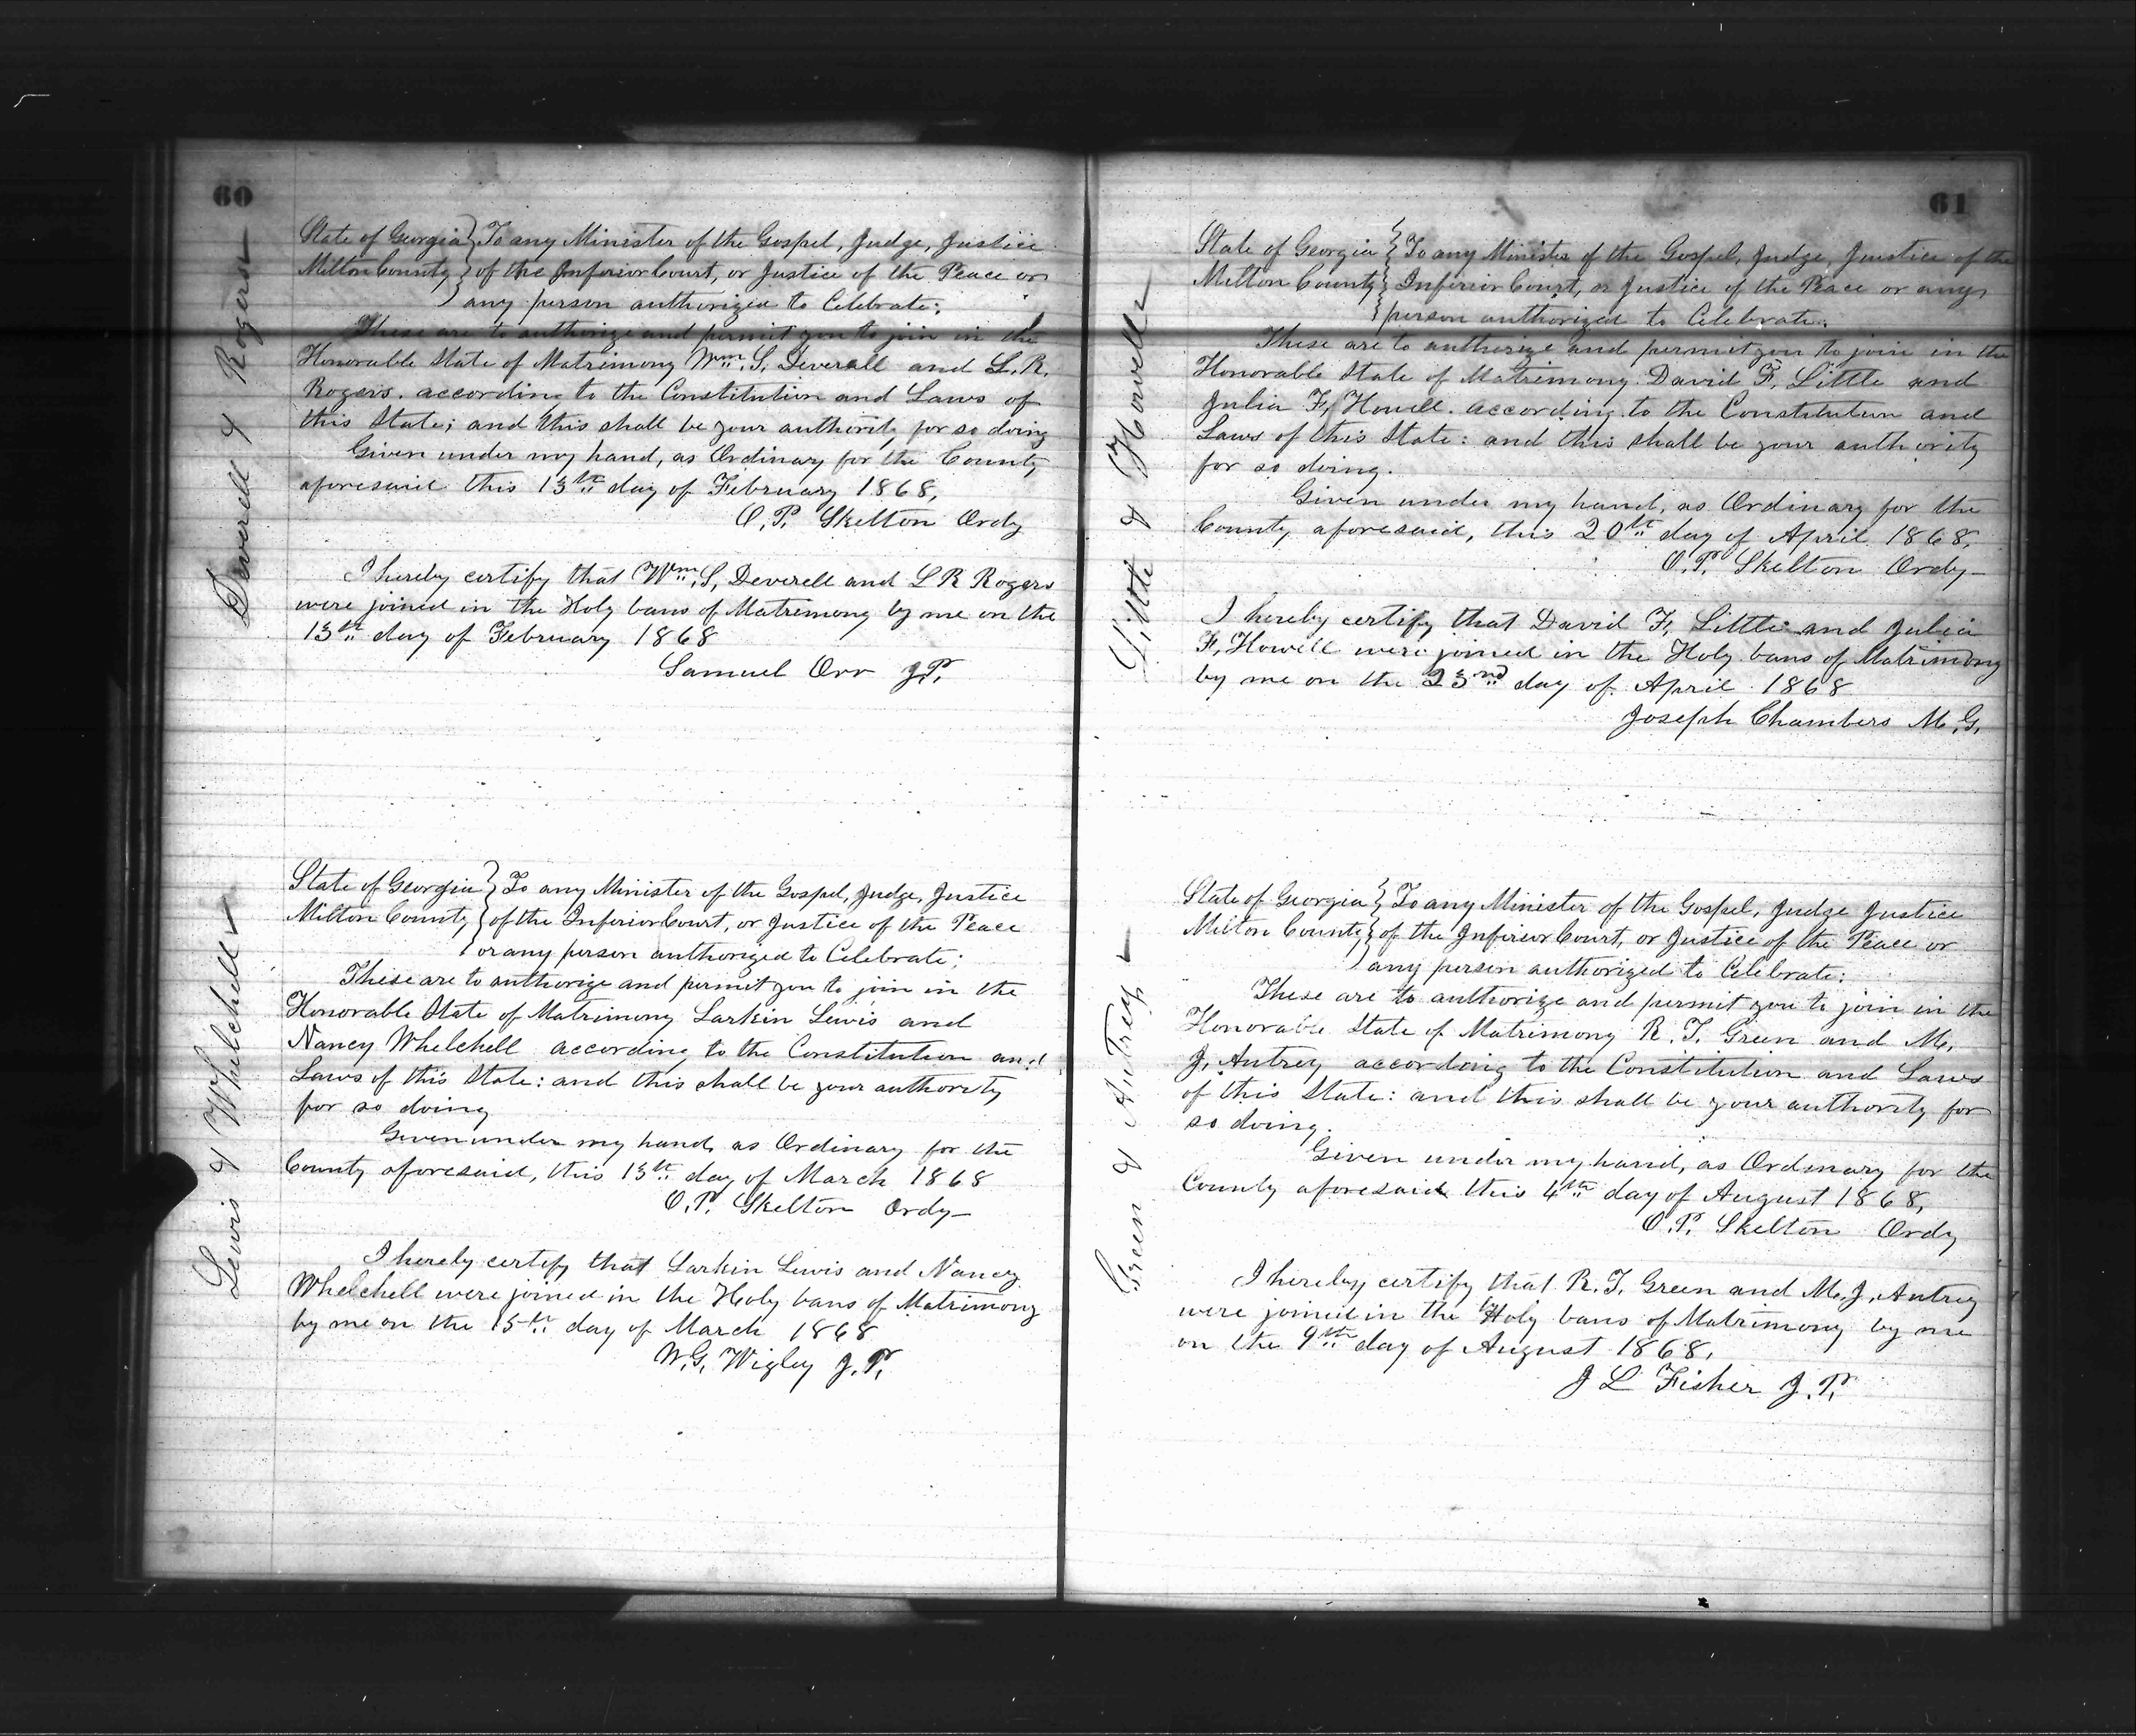 60
Deverell & Rogers
State of Georgia } To any Minister of the Gospel, Judge, Justice
Milton County, } of the Inferior Court, or Justice of the Peace or
} any person authorized to Celebrate:
These are to authorize and permit you to join in the
Honorable State of Matrimony Wm. S. Deverall and L. R.
Rogers. according to the Constitution and Laws of
this State; and this shall be your authority for so doing
Given under my hand, as Ordinary for the County
aforesaid this 13th day of February 1868,
O. P. Skelton Ordy
I hereby certify that Wm. S. Deverell and L R Rogers
were joined in the Holy bans of Matrimony by me on the
13th day of February 1868
Samuel Orr J.P.
Lewis & Whelchell
State of Georgia } To any Minister of the Gospel, Judge, Justice
Milton County, } of the Inferior Court, or Justice of the Peace
} or any person authorized to Celebrate;
These are to authorize and permit you to join in the
Honorable State of Matrimony Larkin Lewis and
Nancy Whelchell according to the Constitution and
Laws of this State: and this shall be your authority
for so doing
Given under my hand, as Ordinary for the
County aforesaid, this 13th day of March 1868
O. P. Skelton Ordy
I hereby certify that Larkin Lewis and Nancy
Whelchell were joined in the Holy bans of Matrimony
by me on the 15th day of March 1868
W. G. Wigley J. P.
61
Little & Howell
State of Georgia } To any Minister of the Gospel, Judge, Justice of the
Milton County } Inferior Court, or Justice of the Peace or any
} person authorized to Celebrate.
These are to authorize and permit you to join in the
Honorable State of Matrimony David F. Little and
Julia F. Howell. according to the Constitution and
Laws of this State: and this shall be your authority
for so doing.
Given under my hand, as Ordinary for the
County aforesaid, this 20th day of April 1868,
O. P. Skelton Ordy
I hereby certify that David F. Little and Julia
F. Howell were joined in the Holy bans of Matrimony
by me on the 23nd day of April 1868
Joseph Chambers M. G.
Green & Autrey
State of Georgia } To any Minister of the Gospel, Judge Justice
Milton County, } of the Inferior Court, or Justice of the Peace or
} any person authorized to Celebrate:
These are to authorize and permit you to join in the
Honorable State of Matrimony R. T. Green and M.
J. Autrey according to the Constitution and Laws
of this State: and this shall be your authority for
so doing.
Given under my hand, as Ordinary for the
County aforesaid this 4th day of August 1868,
O. P. Skelton Ordy
I hereby certify that R. T. Green and M. J. Autrey
were joined in the Holy bans of Matrimony by me
on the 9th day of August 1868,
J L Fisher J. P.